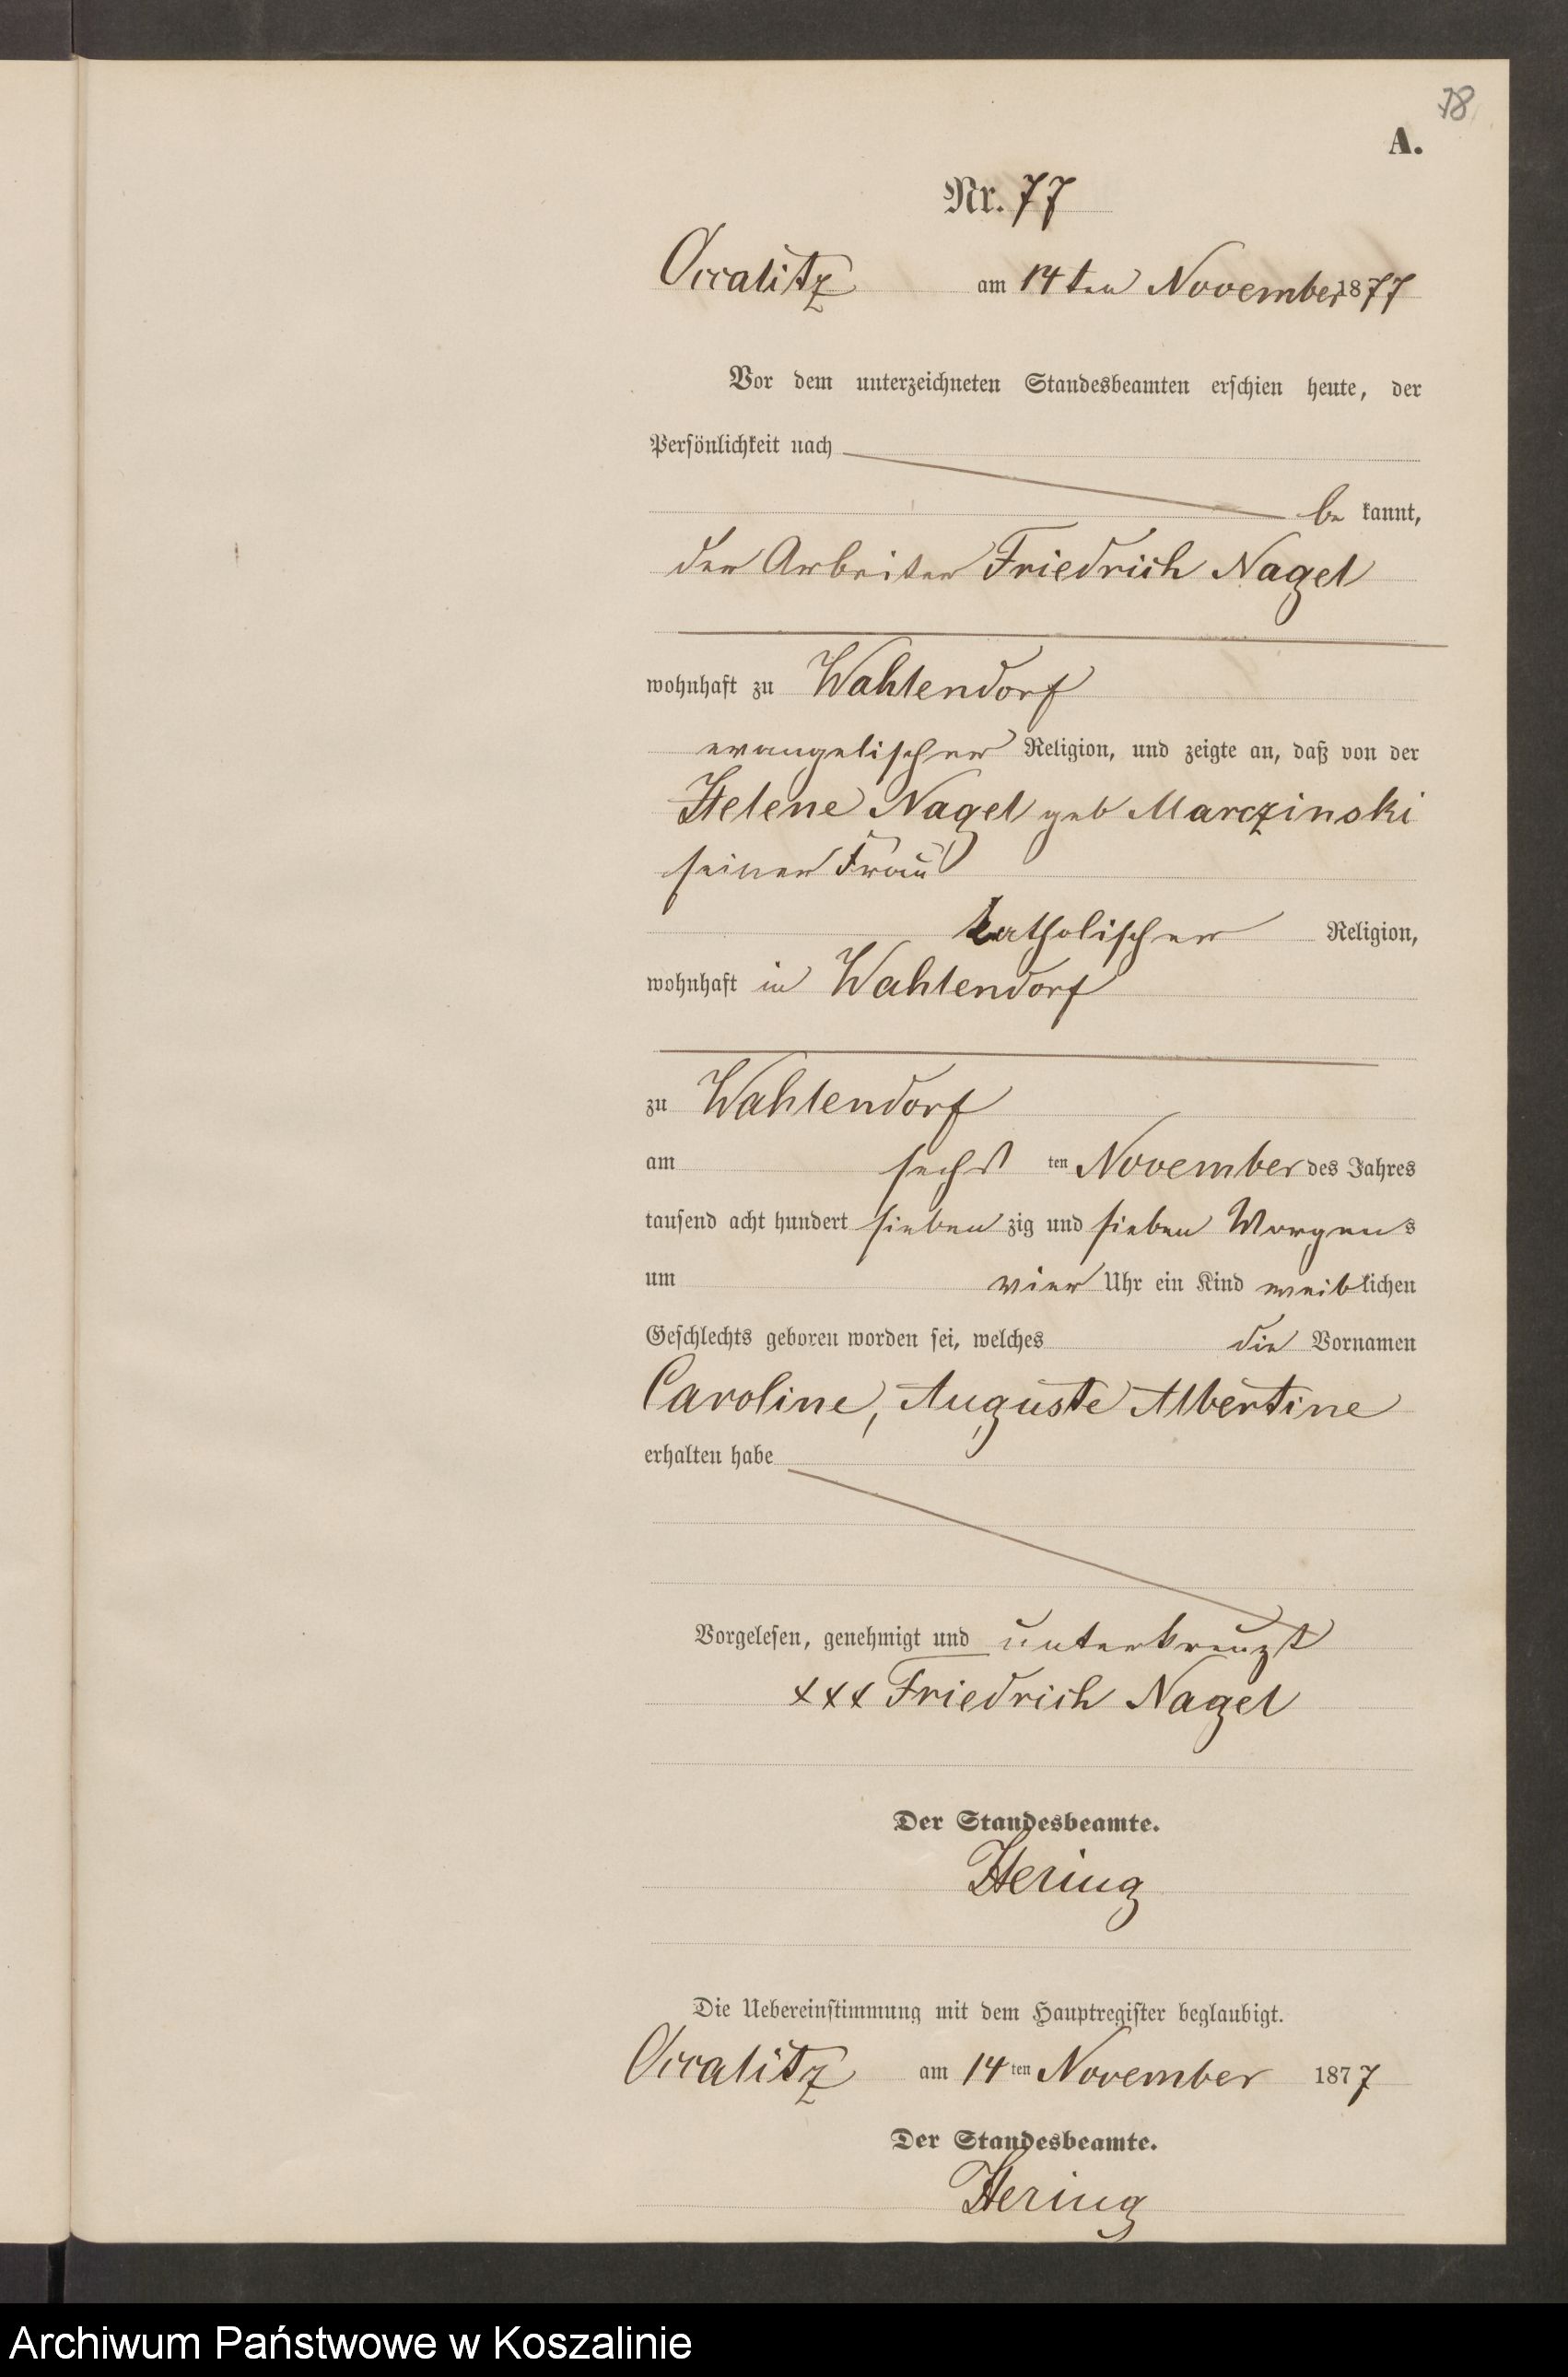 78
A.
Nr. 77
Occalitz am 14ten November 1877
Vor dem unterzeichneten Standesbeamten erschien heute, der
Persönlichkeit nach
be kannt,
der Arbeiter Friedrich Nagel
wohnhaft zu Wahlendorf
evangelischer Religion, und zeigte an, daß von der
Helene Nagel geb Marczinski
seiner Frau
katholischer Religion,
wohnhaft in Wahlendorf
zu Wahlendorf
am sechst ten November des Jahres
tausend acht hundert sieben zig und sieben Morgens
um vier Uhr ein Kind weiblichen
Geschlechts geboren worden sei, welches die Vornamen
Caroline, Auguste Albertine
erhalten habe
Vorgelesen, genehmigt und unterkreuzt
xxx Friedrich Nagel
Der Standesbeamte.
Hering
Die Uebereinstimmung mit dem Hauptregister beglaubigt.
Occalitz am 14ten November 1877
Der Standesbeamte.
Hering
Archiwum Państwowe w Koszalinie